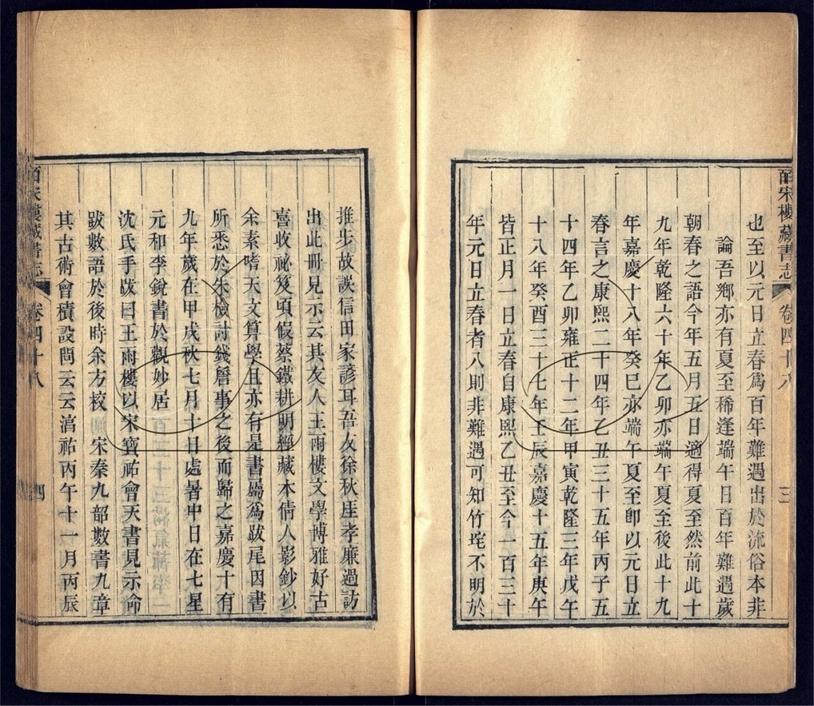 皕宋樓藏書志 卷四十八 三
也至以元日立春爲百年難遇出於流俗本非
論吾鄉亦有夏至稀逢端午日百年難遇歲
朝春之語今年五月五日適得夏至然前此十
九年乾隆六十年乙卯亦端午夏至後此十九
年嘉慶十八年癸巳亦端午夏至卽以元日立
春言之康熙二十四年乙丑三十五年丙子五
十四年乙卯雍正十二年甲寅乾隆三年戊午
十八年癸酉三十七年壬辰嘉慶十五年庚午
皆正月一日立春自康熙乙丑至今一百三十
年元日立春者八則非難遇可知竹垞不明於
推步故誤信田家諺耳吾友徐秋厓孝廉過訪
出此冊見示云其友人王雨樓文學博雅好古
喜收祕笈頃假蔡鐵耕明經藏本倩人影鈔以
余素嗜天文算學且亦有是書屬爲跋尾因書
所悉於朱檢討錢詹事之後而歸之嘉慶十有
九年歲在甲戌秋七月十日處暑中日在七星
元和李銳書於觀妙居
沈氏手跋曰王雨樓以宋寶祐會天書見示命
跋數語於後時余方校 宋秦九韶數書九章
其古術會積設問云云淯祐丙午十一月丙辰
皕宋樓藏書志 卷四十八 四